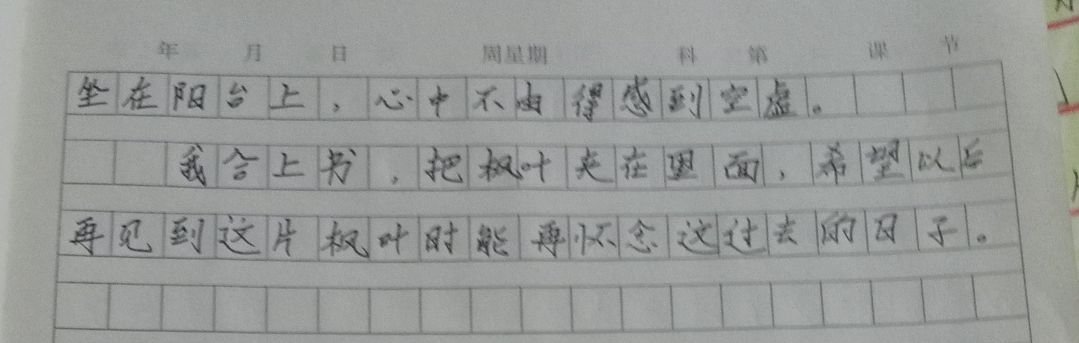 年 月 日 周星期 科 第 课 节
坐在阳台上，心中不由得感到空虚。
我合上书，把枫叶夹在里面，希望以后
再见到这片枫叶时能再怀念这过去的日子。